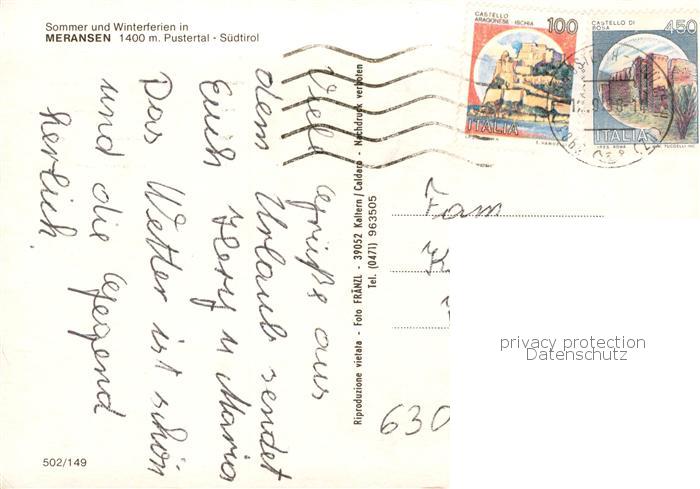 Sommer und Winterferien in
MERANSEN 1400 m. Pustertal - Südtirol
Viele Grüße aus
dem Urlaub sendet
Euch Herz u Maria
Das Wetter ist schön
und die Gegend
herlich.
502/149
Riproduzione vietata - Foto FRÄNZL - 39052 Kaltern / Caldaro - Nachdruck verboten
Tel. (0471) 963505
CASTELLO
ARAGONESE - ISCHIA
100
ITALIA
CASTELLO DI
450
ITALIA
Fam
630
privacy protection
Datenschutz